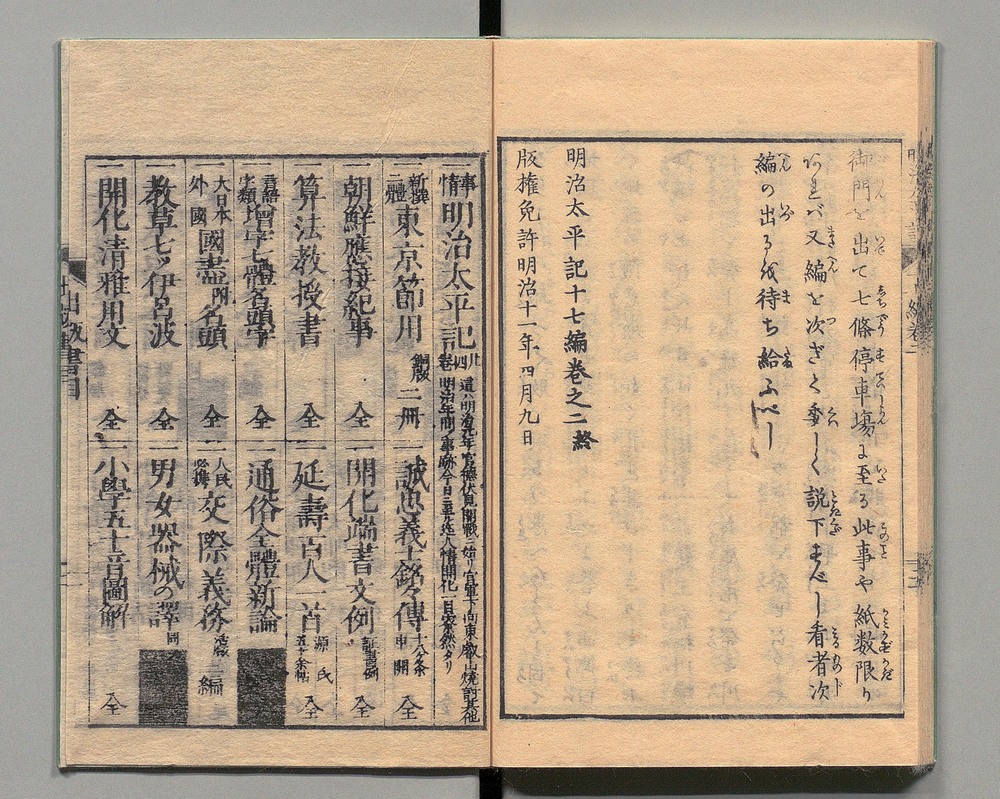 御門を出て七條停車塲に至る此事や紙数限り
あれバ又編を次ぎて委しく説下すべし看者次
編の出るを待ち給ふべし
明治太平記十七編巻之二終
版権免許明治十一年四月九日
出版書目
事情明治太平記
四巻
這ハ明治元年官德伏見開戰ニ始リ官軍下向東叡山焼討其他
明治年間ノ事跡今日ニ至ル迄人情開化一目瞭然タリ
新撰二體東京節用 銅版 二冊
誠忠義士銘々傳 全
朝鮮應接紀事 全
開化端書文例 証書例 全
算法教授書 全
延壽百人一首 源氏五十余帖 全
言語字類増字七體名頭字 全
通俗全體新論
大日本外國國盡名頭 全
人民必携交際義務 三編
教草七ッ伊呂波 全
男女器械の譯 同
開化清雅用文 全
小學五十音圖解 全